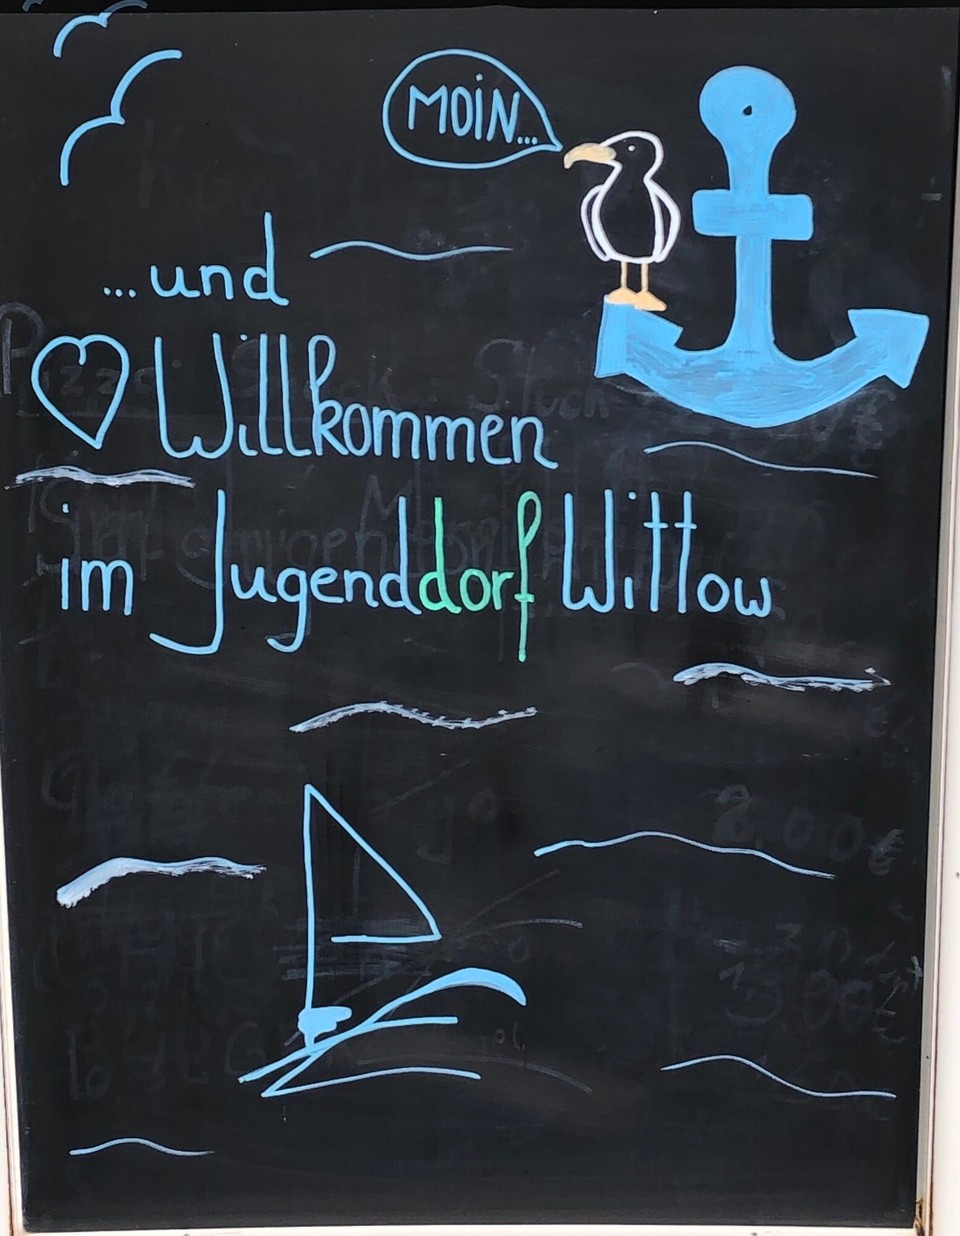 MOIN...
...und
♡ Willkommen
im Jugenddorf Wittow